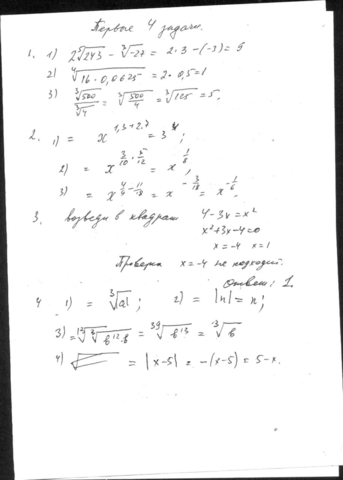 Первые 4 задачи.
1. 1) 2⁵√243 − ³√-27 = 2·3 − (−3) = 9
2) ⁴√16·0,0625 = 2·0,5 = 1
3) ³√500 / ³√4 = ³√(500/4) = ³√125 = 5.
2. 1) = x^(1,3+2,7) =
2) = x^(3/10 · 5/12) = x^(1/8),
3) = = x^(-3/18) = x^(-1/6).
3. возводи в квадрат 4 − 3x = x²
x² + 3x − 4 = 0
x = −4 x = 1
Проверка x = −4 не подходит.
Ответ: 1.
4 1) = ³√|a| ; 2) = |n| = n ;
3) = ³⁹√b¹³ = ³√b
4) = |x−5| = −(x−5) = 5−x.